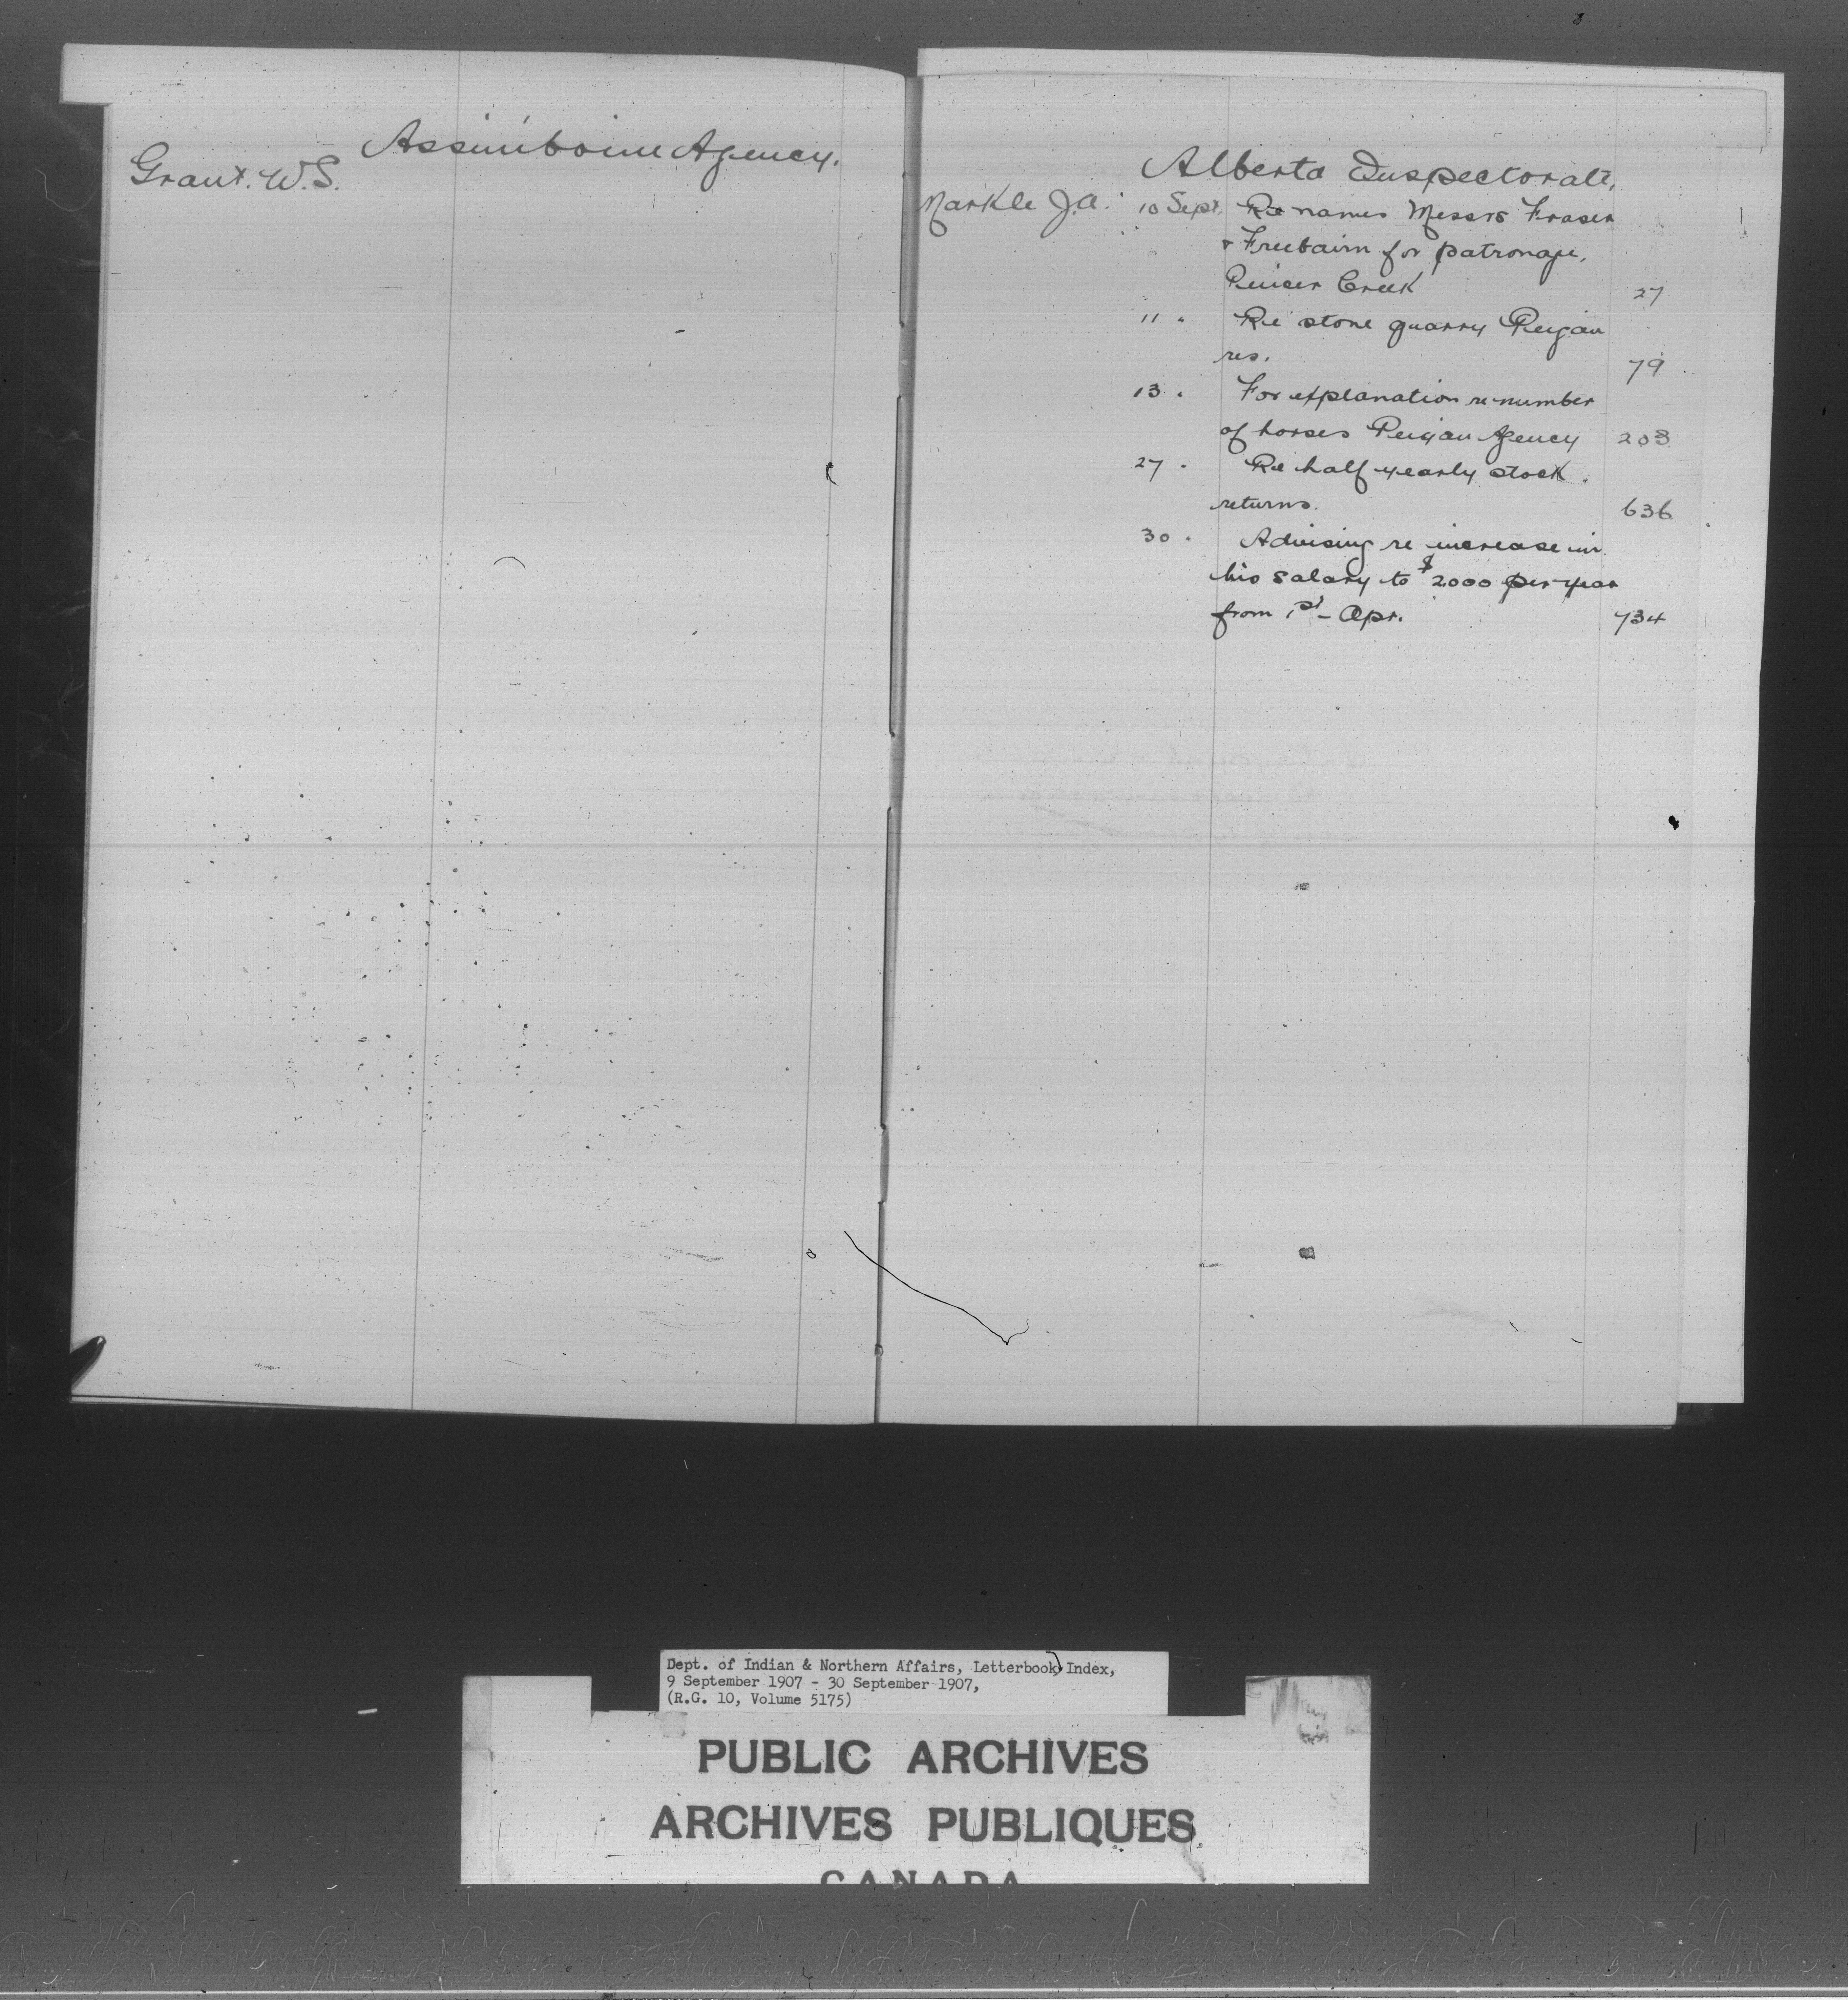 Assiniboine Agency.
Grant. W.S.
Alberta Inspectorate.
Markle J.A. 10 Sept. Re names Messrs Fraser
& Freebairn for patronage,
Pincer Creek 27
11 " Re stone quarry Peigan
res. 79
13 " For explanation re number
of horses Peigan Agency 203
27 " Re half yearly stock
returns. 636
30 " Advising re increase in
his salary to $2000 per year
from 1st Apr. 734
Dept. of Indian & Northern Affairs, Letterbook Index,
9 September 1907 - 30 September 1907,
(R.G. 10, Volume 5175)
PUBLIC ARCHIVES
ARCHIVES PUBLIQUES
CANADA